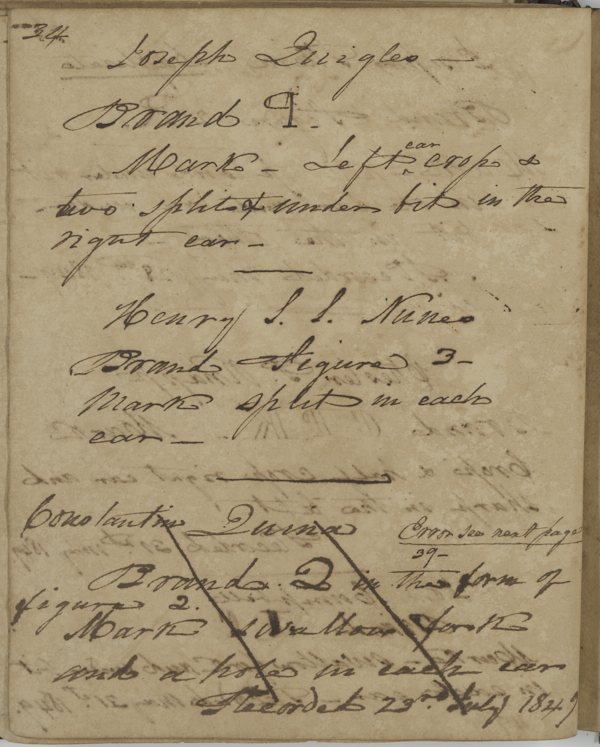 34
Joseph Quigles —
Brand q.
Mark — Left ear crop &
two splits & under bit in the
right ear —
Henry S. S. Nunes
Brand Figure 3 —
Mark split in each
ear —
Constantin Quina
Error see next page
39 —
Brand 2 in the form of
figure 2.
Mark swallow fork
and a hole in each ear
Recorded 23rd July 1849